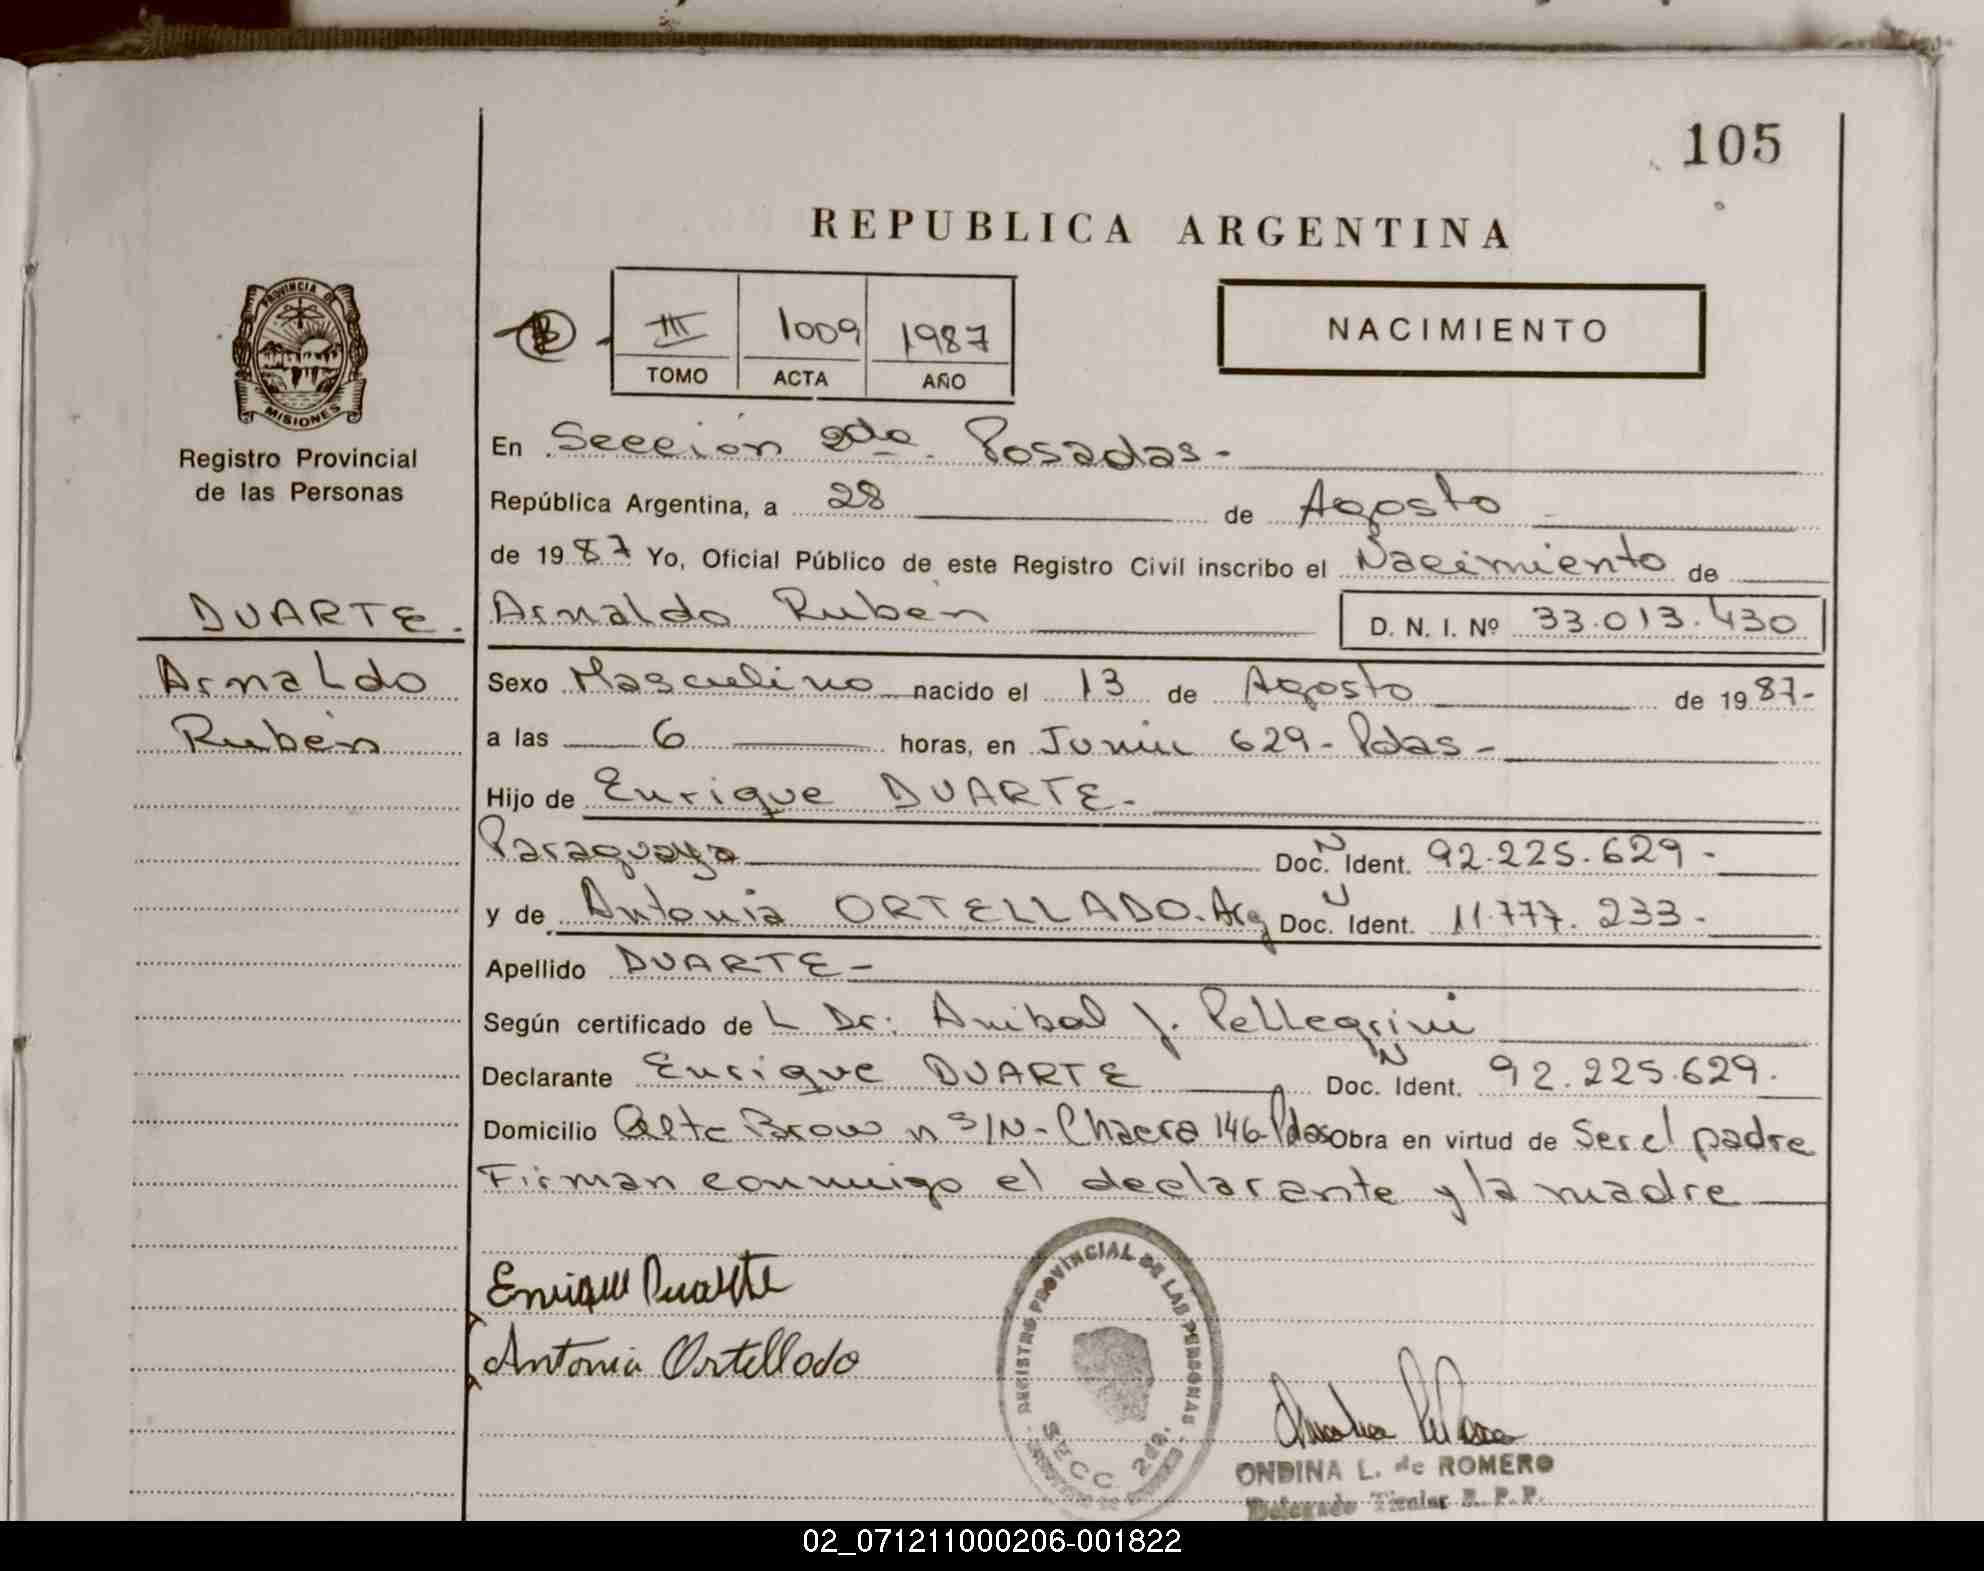 105
REPUBLICA ARGENTINA
PROVINCIA DE
MISIONES
Registro Provincial
de las Personas
III 1009 1987
TOMO ACTA AÑO
NACIMIENTO
En Sección 2da. Posadas-
República Argentina, a 28 de Agosto
de 1987 Yo, Oficial Público de este Registro Civil inscribo el Nacimiento de
DUARTE. Arnaldo Rubén D. N. I. Nº 33.013.430
Arnaldo Sexo Masculino nacido el 13 de Agosto de 1987-
Rubén a las 6 horas, en Junin 629- Pdas-
Hijo de Enrique DUARTE-
Paraguaya Doc. N Ident. 92.225.629-
y de Antonia ORTELLADO. Arg Doc. N Ident. 11.777.233-
Apellido DUARTE-
Según certificado de L Dr: Anibal J. Pellegrini
Declarante Enrique DUARTE Doc. N Ident. 92.225.629.
Domicilio Alte Brown s/N- Chacra 146-Pdas Obra en virtud de Ser el padre
Firman conmigo el declarante y la madre
Enrique Duarte
Antonia Ortellado
REGISTRO PROVINCIAL DE LAS PERSONAS
SECC 2da.
ONDINA L. de ROMERO
Delegado Titular R. P. P.
02_071211000206-001822